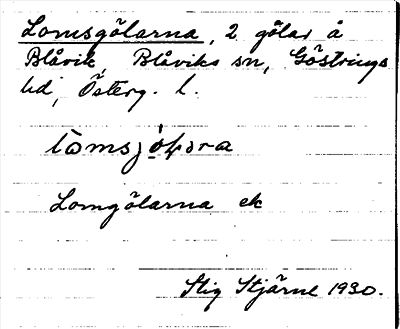 Lomsgölarna, 2 gölar å
Blåvik, Blåviks sn, Göstrings
hd, Österg. l.
Lomgölarna ek
Stig Stjärne 1930.